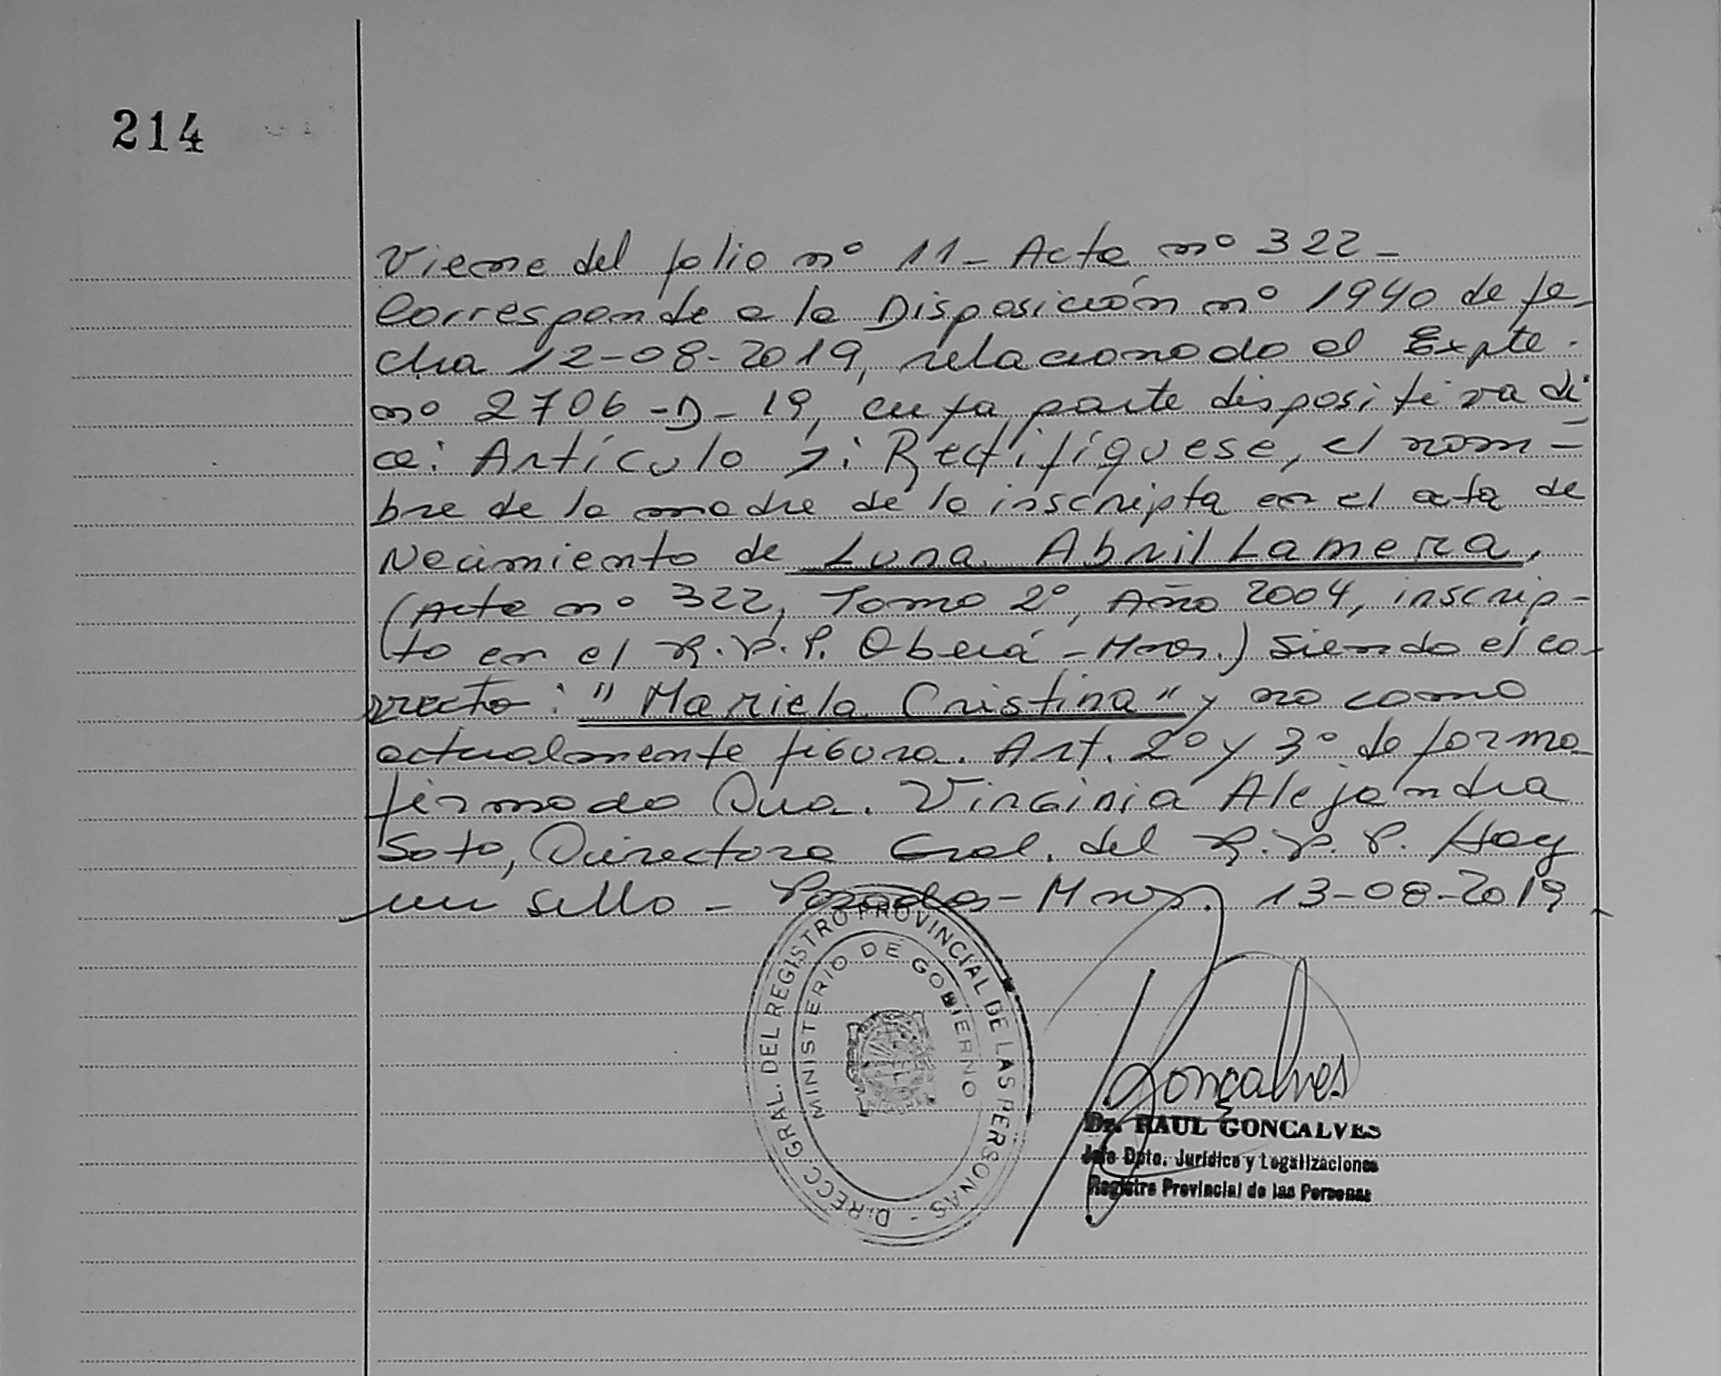 214
Viene del folio nº 11 - Acta nº 322 -
Corresponde a la Disposición nº 1940 de fe-
cha 12-08-2019, relacionado al Expte.
nº 2706-D-19, cuya parte dispositiva di
ce: Artículo 1: Rectifíquese, el nom-
bre de la madre de la inscripta en el acta de
Nacimiento de Luna Abril Lamera,
(Acta nº 322, Tomo 2º, Año 2004, inscrip-
to en el R.P.P. Oberá - Mnes.) Siendo el co-
rrecto: "Mariela Cristina" y no como
actualmente figura. Art. 2º y 3º de forma
firmado Dra. Virginia Alejandra
Soto, Directora Gral. del R.P.P. Hay
un sello - Posadas - Mnes. 13-08-2019
DIRECC. GRAL. DEL REGISTRO PROVINCIAL DE LAS PERSONAS -
MINISTERIO DE GOBIERNO
Gonçalves
Dr. RAUL GONCALVES
Jefe Dpto. Jurídico y Legalizaciones
Registro Provincial de las Personas